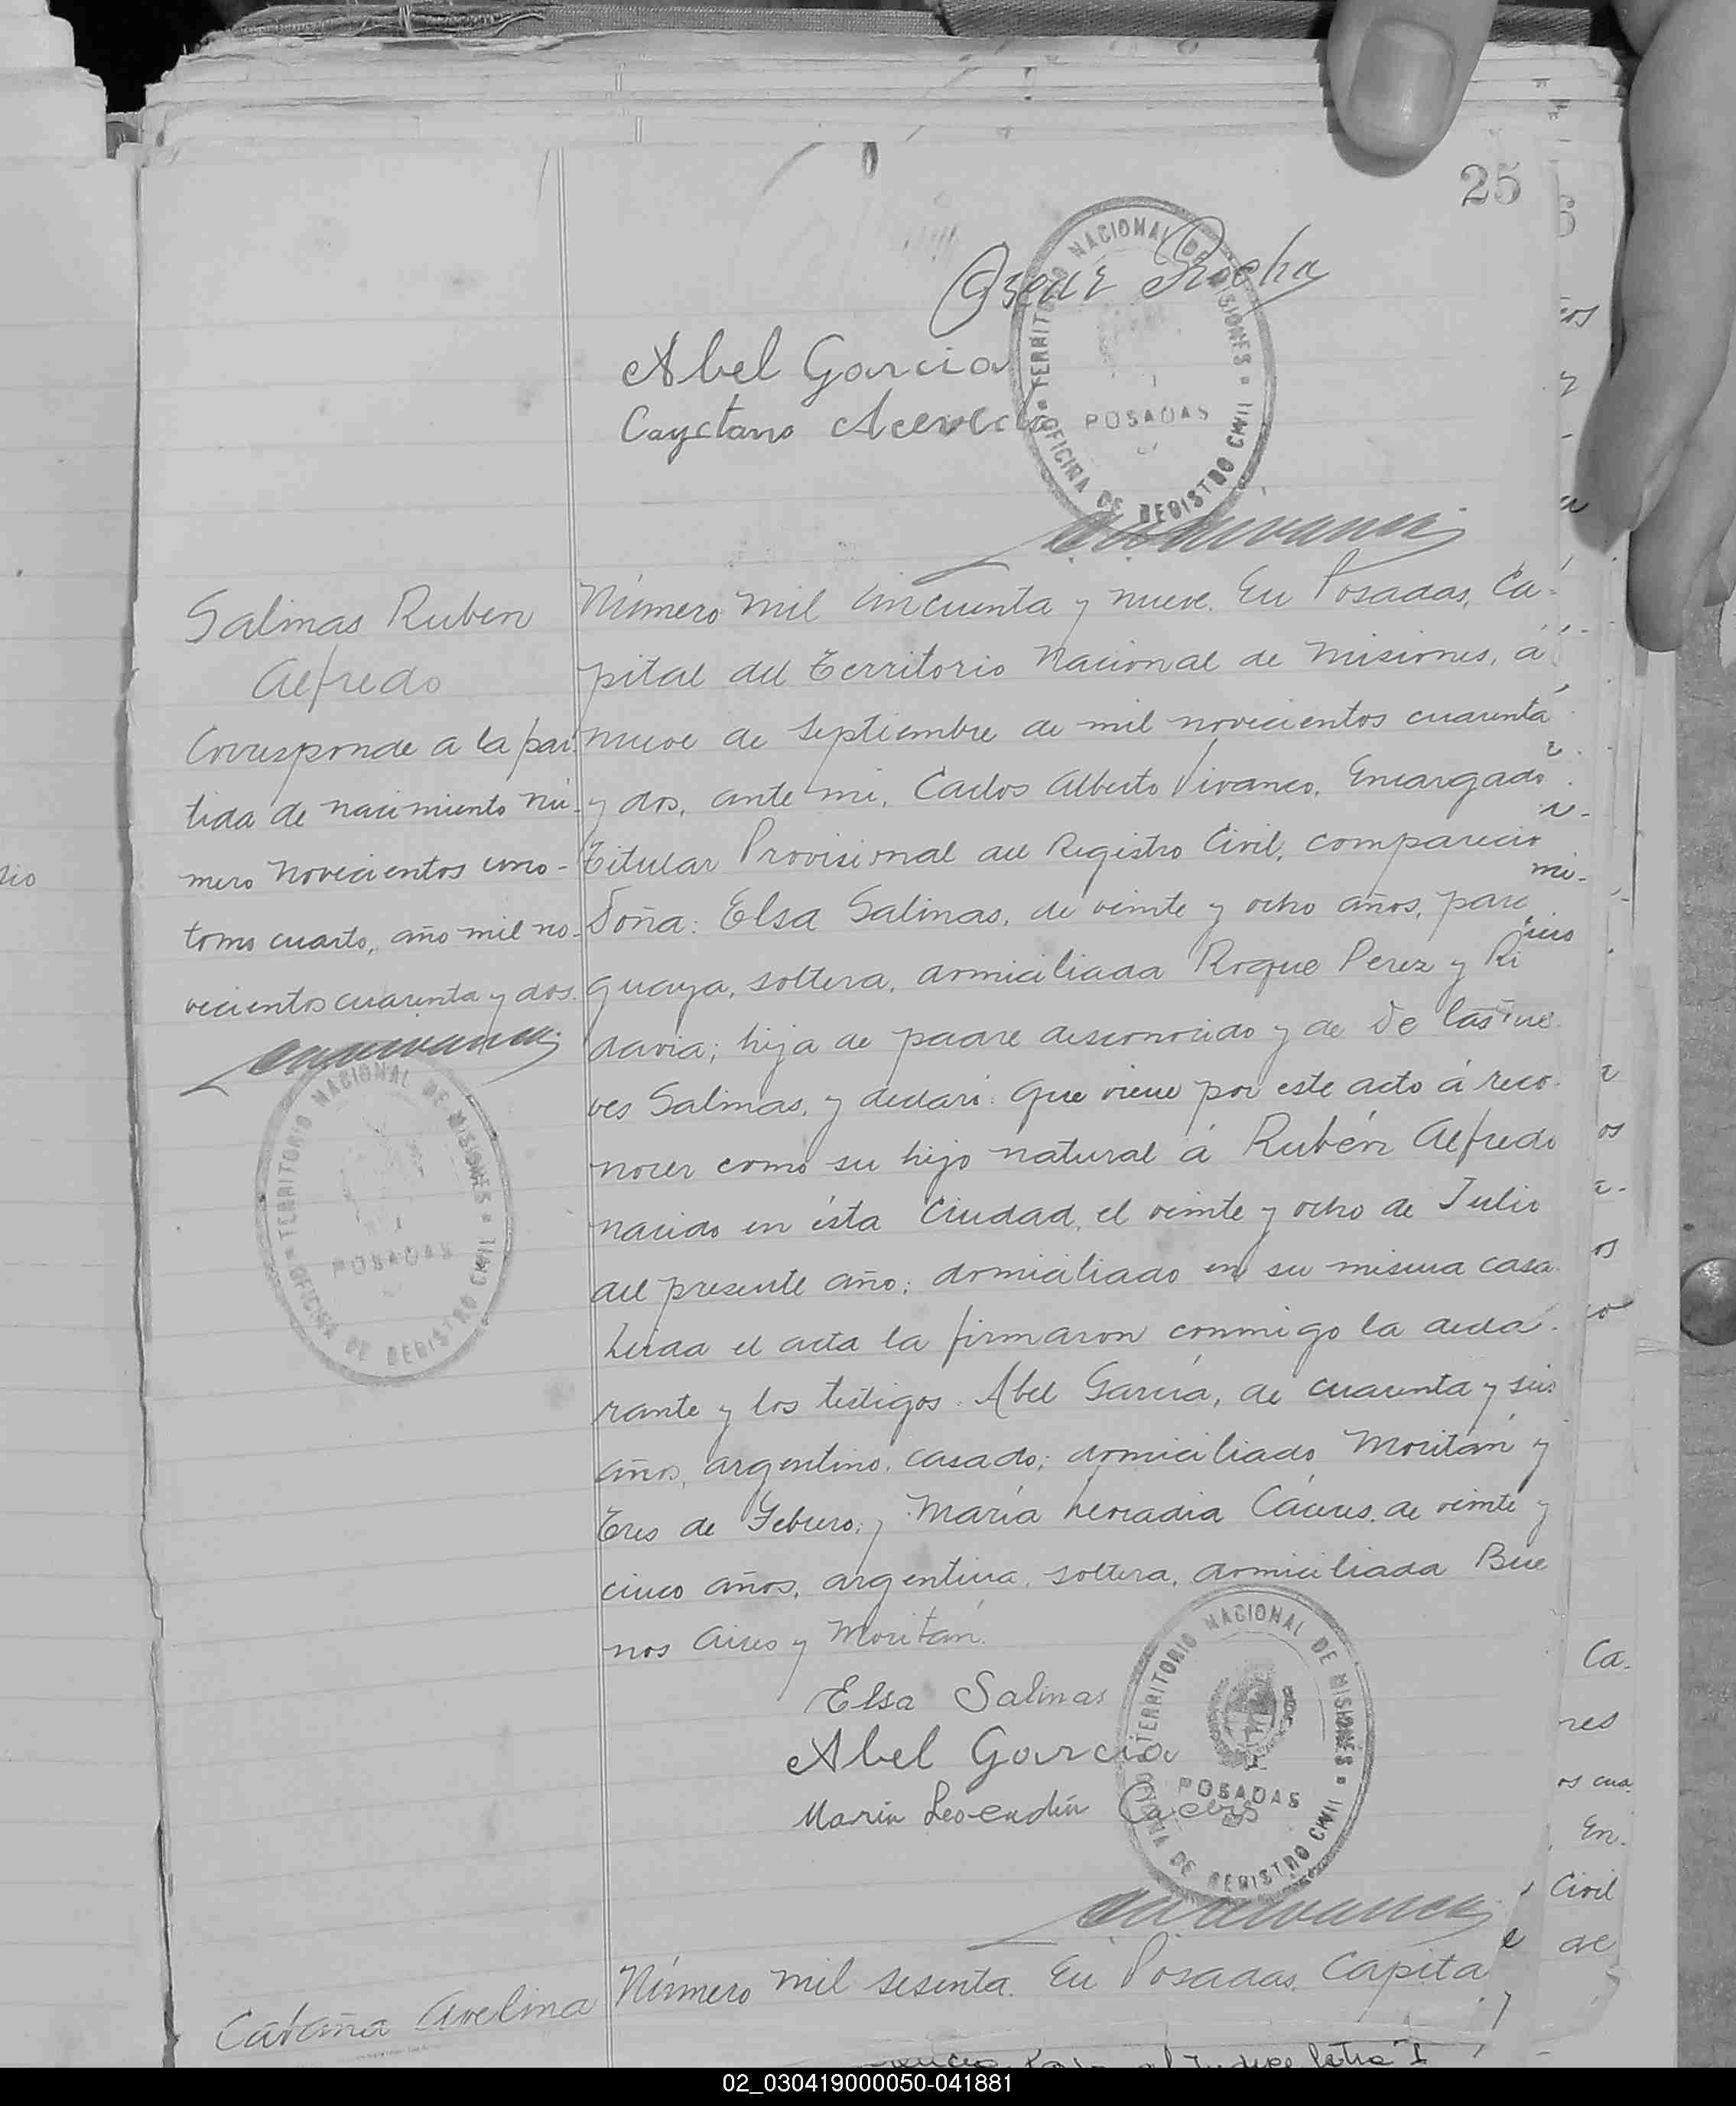 25
Oscar Rocha
Abel Garcia
Cayetano Acevedo
TERRITORIO NACIONAL DE MISIONES
POSADAS
OFICINA DE REGISTRO CIVIL
Salinas Ruben
Alfredo
Corresponde a la par-
tida de nacimiento nú-
mero novecientos uno-
tomo cuarto, año mil no-
vecientos cuarenta y dos.
TERRITORIO NACIONAL DE MISIONES
POSADAS
OFICINA DE REGISTRO CIVIL
Número mil cincuenta y nueve. En Posadas, Ca-
pital del Territorio Nacional de Misiones, á
nueve de Septiembre de mil novecientos cuarenta
y dos, ante mi, Carlos Alberto Vivanco, Encargado
Titular Provisional del Registro Civil, comparecio
Doña: Elsa Salinas, de veinte y ocho años, para
guaya, soltera, domiciliada Roque Perez y Ri
davia; hija de padre desconocido y de De las Nie
ves Salinas, y declaró: Que viene por este acto á reco-
nocer como su hijo natural á Rubén Alfredo
nacido en ésta Ciudad, el veinte y ocho de Julio
del presente año; domiciliado en su misma casa.
Leida el acta la firmaron conmigo la decla-
rante y los testigos: Abel García, de cuarenta y seis
años, argentino, casado; domiciliado Moritán y
Tres de Febrero; y María Leocadia Cáceres, de veinte y
cinco años, argentina, soltera, domiciliada Bue
nos Aires y Moritán.
Elsa Salinas
Abel Garcia
Maria Leocadia Caceres
TERRITORIO NACIONAL DE MISIONES
POSADAS
OFICINA DE REGISTRO CIVIL
Número mil sesenta. En Posadas, Capita
Avelina
Ca-
res
os cua
En-
Civil
de
02_030419000050-041881